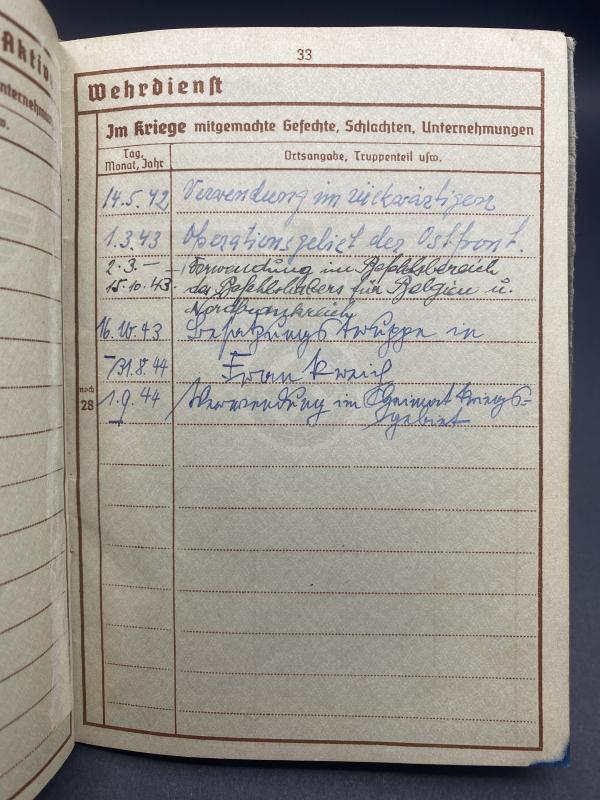 Aktio
nternehmun
w.
33
Wehrdienst
Im Kriege mitgemachte Gefechte, Schlachten, Unternehmungen
Tag, Monat, Jahr
Ortsangabe, Truppenteil usw.
14.5.42 Verwendung im rückwärtigen
1.3.43 Operationsgebiet der Ostfront.
2.3.– Verwendung im Befehlsbereich
15.10.43. des Befehlshabers für Belgien u.
Nordfrankreich
16.10.43 Besatzungstruppe in
–/31.8.44 Frankreich
noch 28
1.9.44 Verwendung im Heimatkriegs-
– gebiet